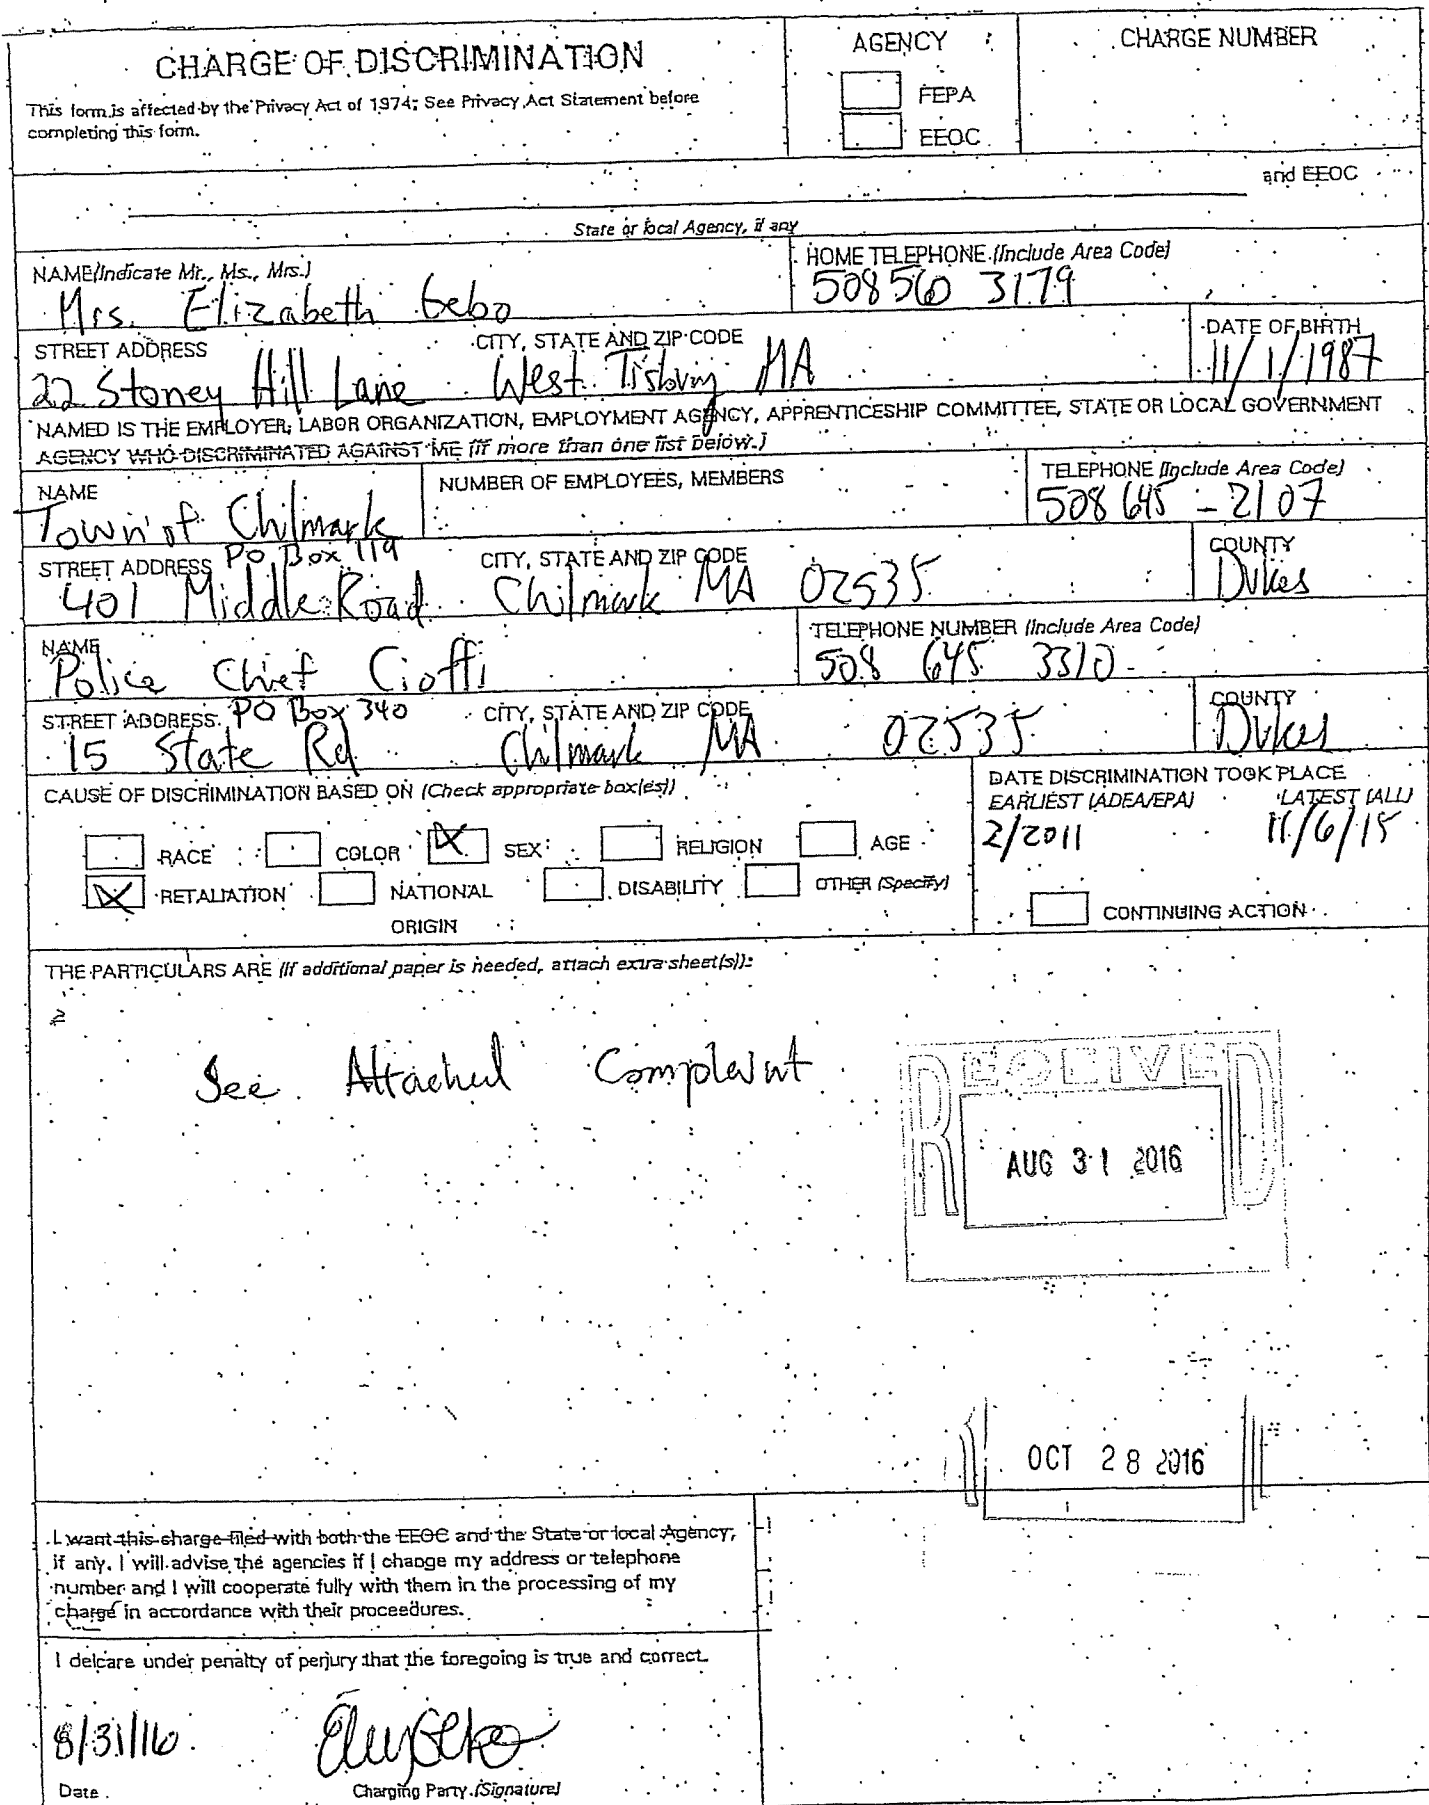 CHARGE OF DISCRIMINATION
This form is affected by the Privacy Act of 1974; See Privacy Act Statement before
completing this form.
AGENCY
FEPA
EEOC
CHARGE NUMBER
and EEOC
State or local Agency, if any
NAME(Indicate Mr., Ms., Mrs.)
Mrs. Elizabeth Gebo
HOME TELEPHONE (Include Area Code)
508 560 3179
STREET ADDRESS
22 Stoney Hill Lane
CITY, STATE AND ZIP CODE
West Tisbury MA
DATE OF BIRTH
11/1/1987
NAMED IS THE EMPLOYER, LABOR ORGANIZATION, EMPLOYMENT AGENCY, APPRENTICESHIP COMMITTEE, STATE OR LOCAL GOVERNMENT
AGENCY WHO DISCRIMINATED AGAINST ME (If more than one list below.)
NAME
Town of Chilmark
NUMBER OF EMPLOYEES, MEMBERS
TELEPHONE (Include Area Code)
508 645 - 2107
STREET ADDRESS PO Box 119
401 Middle Road
CITY, STATE AND ZIP CODE
Chilmark MA 02535
COUNTY
Dukes
NAME
Police Chief Cioffi
TELEPHONE NUMBER (Include Area Code)
508 645 3310
STREET ADDRESS. PO Box 340
15 State Rd
CITY, STATE AND ZIP CODE
Chilmark MA 02535
COUNTY
Dukes
CAUSE OF DISCRIMINATION BASED ON (Check appropriate box(es))
RACE COLOR X SEX RELIGION AGE
X RETALIATION NATIONAL DISABILITY OTHER (Specify)
ORIGIN
DATE DISCRIMINATION TOOK PLACE
EARLIEST (ADEA/EPA) LATEST (ALL)
2/2011 11/6/15
CONTINUING ACTION
THE PARTICULARS ARE (If additional paper is needed, attach extra sheet(s)):
See Attached Complaint
RECEIVED
AUG 31 2016
OCT 28 2016
I want this charge filed with both the EEOC and the State or local Agency,
if any. I will advise the agencies if I change my address or telephone
number and I will cooperate fully with them in the processing of my
charge in accordance with their proceedures.
I delcare under penalty of perjury that the foregoing is true and correct.
8/31/16
Date
Charging Party (Signature)